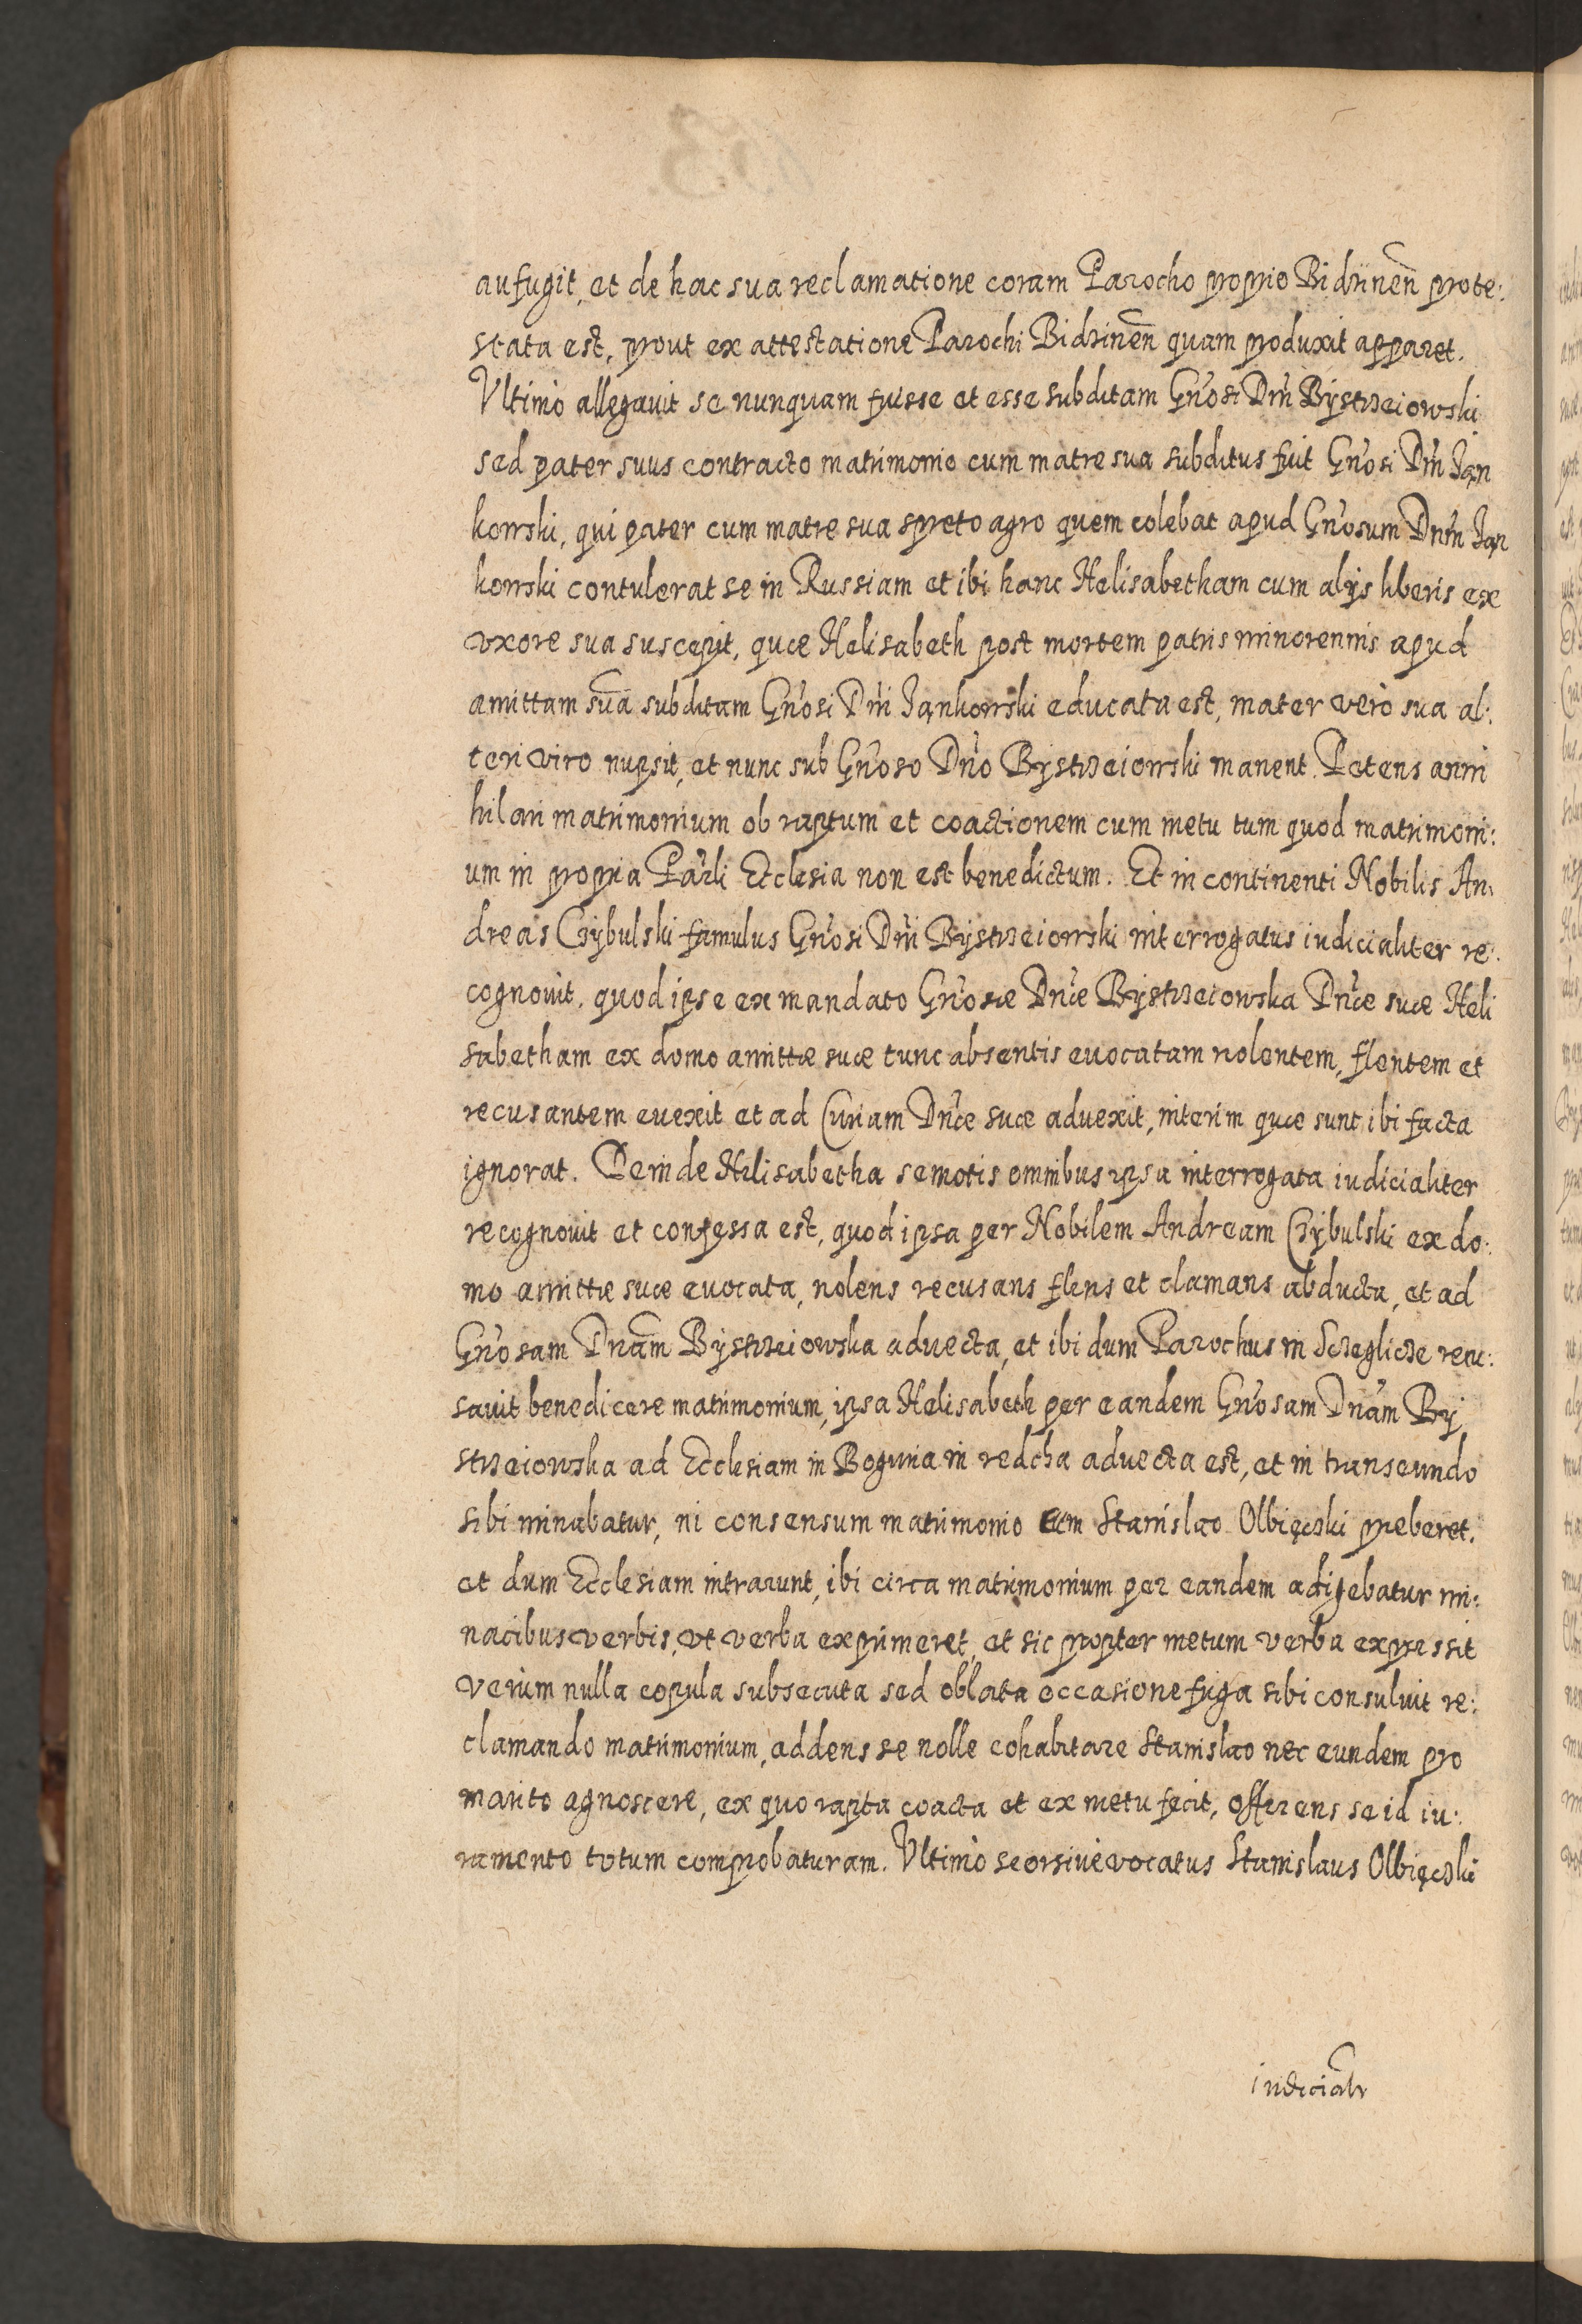 aufugit, et de hac sua reclamatione coram Parocho proprio Bidzinen̄ prote:
stata est, prout ex attestatione Parochi Bidzinen̄ quam produxit apparet.
Vltimò allegauit se nunquam fuisse et esse subditam Gn̄osi Dn̄i Bÿstrzeiowski
sed pater suus contracto matrimonio cum matre sua subditus fuit Gn̄osi Dn̄i Jan
kowski, qui pater cum matre sua spreto agro quem colebat apud Gn̄osum Dn̄m Jan
kowski contulerat se in Russiam et ibi hanc Helisabetham cum alÿs liberis ex
vxore sua suscepit, quæ Helisabeth post mortem patris minorennis apud
amittam suā subditam Gn̄osi Dn̄i Jankowski educata est, mater verò sua al:
teri viro nupsit, et nunc sub Gn̄oso Dn̄o Bÿstrzeiowski manent. Petens anni
hilari matrimonium ob raptum et coactionem cum metu tum quod matrimoni:
um in propria Par̄li Ecclesia non est benedictum. Et in continenti Nobilis An:
dreas Czÿbulski famulus Gn̄osi Dn̄i Bÿstrzeiowski interrogatus iudicialiter re:
cognouit, quod ipse ex mandato Gn̄osæ Dn̄æ Bÿstrzeiowska Dn̄æ suæ Heli
sabetham ex domo amittæ suæ tunc absentis euocatam nolentem, flentem et
recusantem euexit et ad Curiam Dn̄æ suæ aduexit, interim quæ sunt ibi facta
ignorat. Deinde Helisabetha semotis omnibus ipsa interrogata iudicialiter
recognouit et confessa est, quod ipsa per Nobilem Andream Czÿbulski ex do:
mo amittæ suæ euocata, nolens recusans flens et clamans abducta, et ad
Gn̄osam Dnām Bÿstrzeiowska aduecta, et ibi dum Parochus in Sczeglicze recu:
sauit benedicere matrimonium, ipsa Helisabeth per eandem Gn̄osam Dnām Bÿ
strzeiowska ad Ecclesiam in Boguria in redcha aduecta est, et in transeundo
sibi minabatur, ni consensum matrimonio cum Stanislao Olbięcki preberet.
et dum Ecclesiam intrarunt, ibi circa matrimonium per eandem adigebatur mi:
nacibus verbis, vt verba exprimeret, et sic propter metum verba expressit
verùm nulla copula subsecuta sed oblata occasione fuga sibi consuluit re:
clamando matrimonium, addens se nolle cohabitare Stanislao nec eundem pro
marito agnoscere, ex quo rapta coacta et ex metu fecit, offerens se id iu:
ramento totum comprobaturam. Vltimò seorsiue vocatus Stanislaus Olbięcki
iudicialr